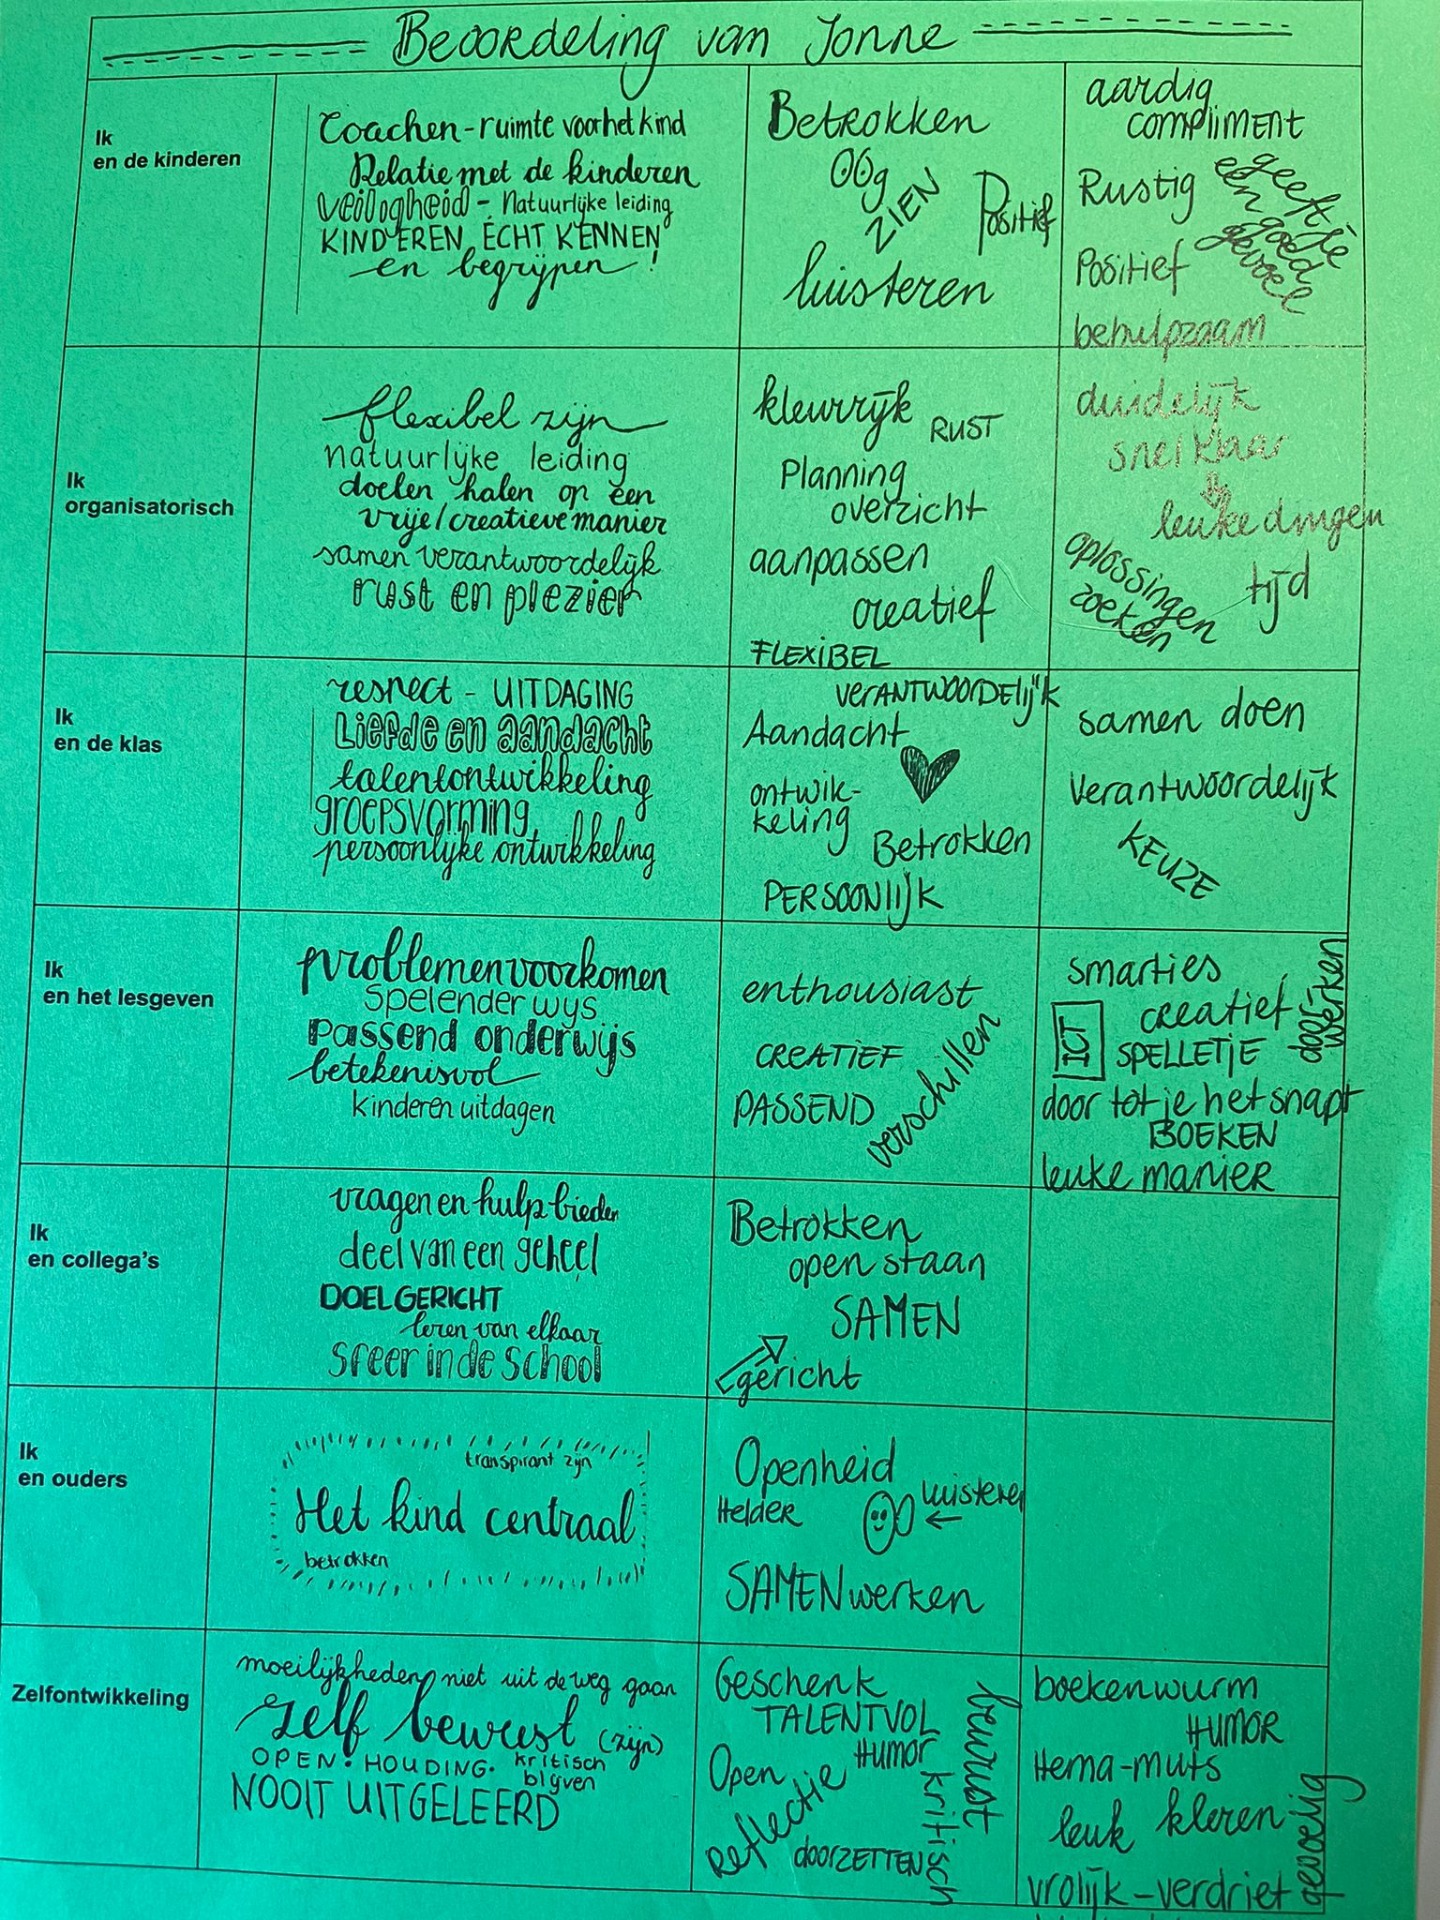 Beoordeling van Jonne
Ik
en de kinderen
Coachen - ruimte voor het kind
Relatie met de kinderen
veiligheid - Natuurlijke leiding
KINDEREN ÉCHT KENNEN
en begrijpen!
Betrokken
OOg
ZIEN
Positief
luisteren
aardig
compliment
Rustig
geeft je
een goed
gevoel
Positief
behulpzaam
Ik
organisatorisch
flexibel zijn
natuurlijke leiding
doelen halen op een
vrije/creatieve manier
samen verantwoordelijk
rust en plezier
kleurrijk
RUST
Planning
overzicht
aanpassen
creatief
FLEXIBEL
duidelijk
snel klaar
leuke dingen
oplossingen
zoeken
tijd
Ik
en de klas
respect - UITDAGING
Liefde en aandacht
talentontwikkeling
groepsvorming
persoonlijke ontwikkeling
VERANTWOORDELIJK
Aandacht
ontwik-
keling
Betrokken
PERSOONLIJK
samen doen
verantwoordelijk
KEUZE
Ik
en het lesgeven
problemen voorkomen
Spelender wijs
Passend onderwijs
betekenisvol
kinderen uitdagen
enthousiast
CREATIEF
PASSEND
verschillen
smarties
creatief
door-
werken
ICT
SPELLETJE
door tot je het snapt
BOEKEN
leuke manier
Ik
en collega's
vragen en hulp bieden
deel van een geheel
DOELGERICHT
leren van elkaar
sfeer in de school
Betrokken
open staan
SAMEN
gericht
Ik
en ouders
transpirant zijn
Het kind centraal
betrokken
Openheid
Helder
luisteren
SAMENwerken
Zelfontwikkeling
moeilijkheden niet uit de weg gaan
zelf bewust (zijn)
OPEN HOUDING. kritisch
blijven
NOOIT UITGELEERD
Geschenk
TALENTVOL
Open
HUMOR
bewust
Reflectie
kritisch
doorZETTEN
boekenwurm
HUMOR
Hema-muts
leuk kleren
gevoelig
vrolijk - verdriet